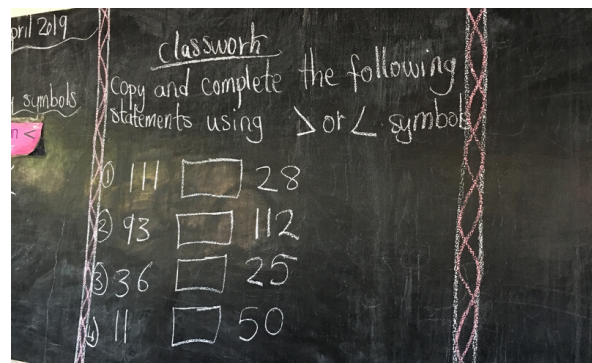 pril 2019
symbols
<
classwork
Copy and complete the following
statements using > or < symbols
① 111 □ 28
② 93 □ 112
③ 36 □ 25
④ 11 □ 50